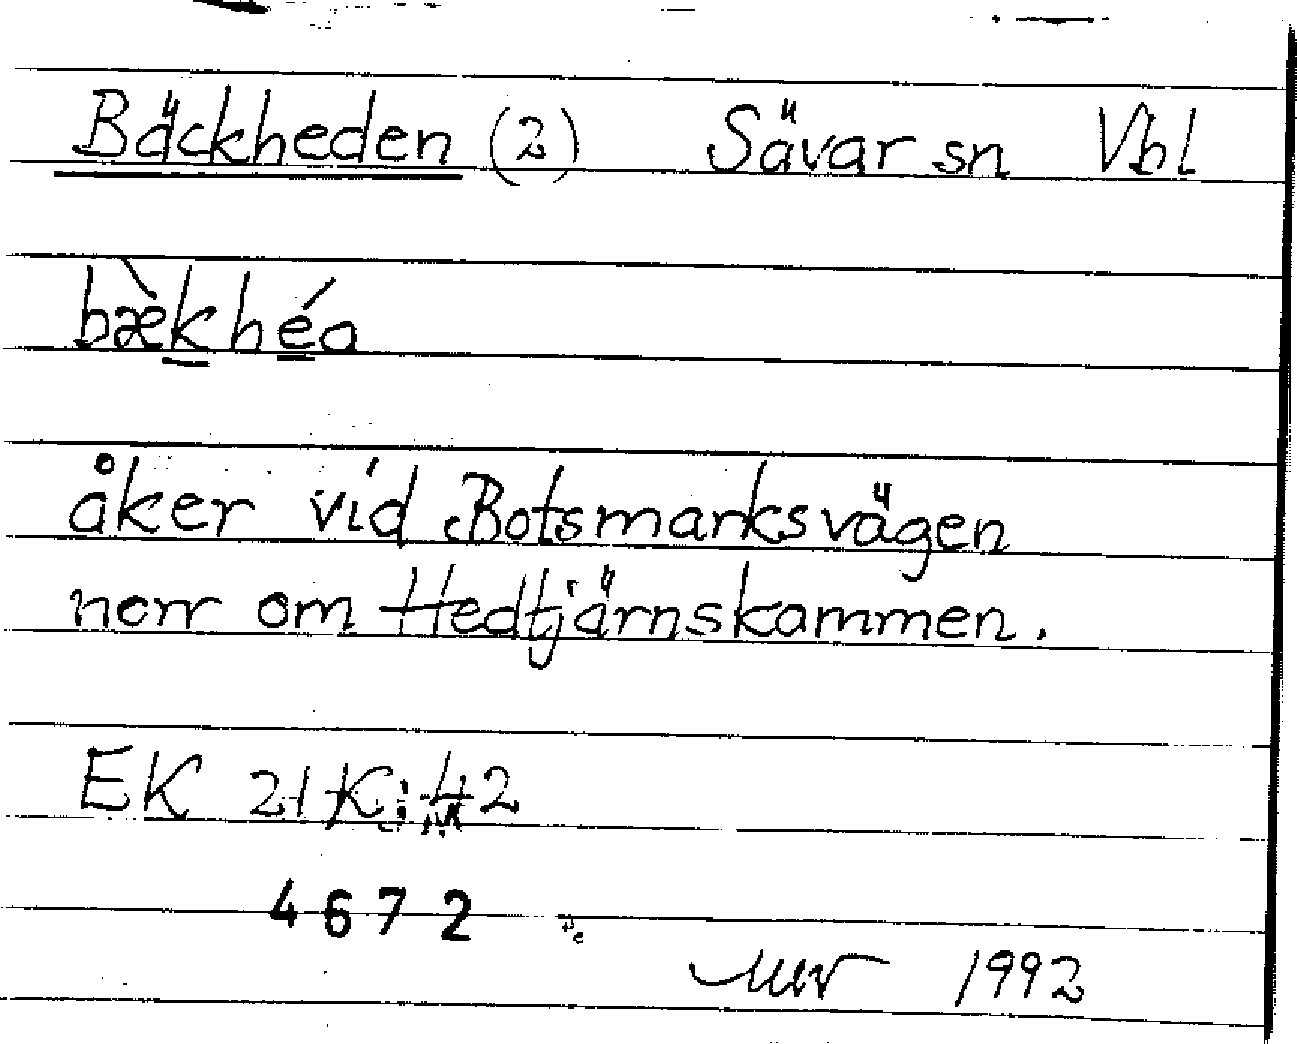 Bäckheden (2) Sävar sn Vbl
bæ̀khéa
åker vid Botsmarksvägen
norr om Hedtjärnskammen.
EK 21K: 42
4672
1992